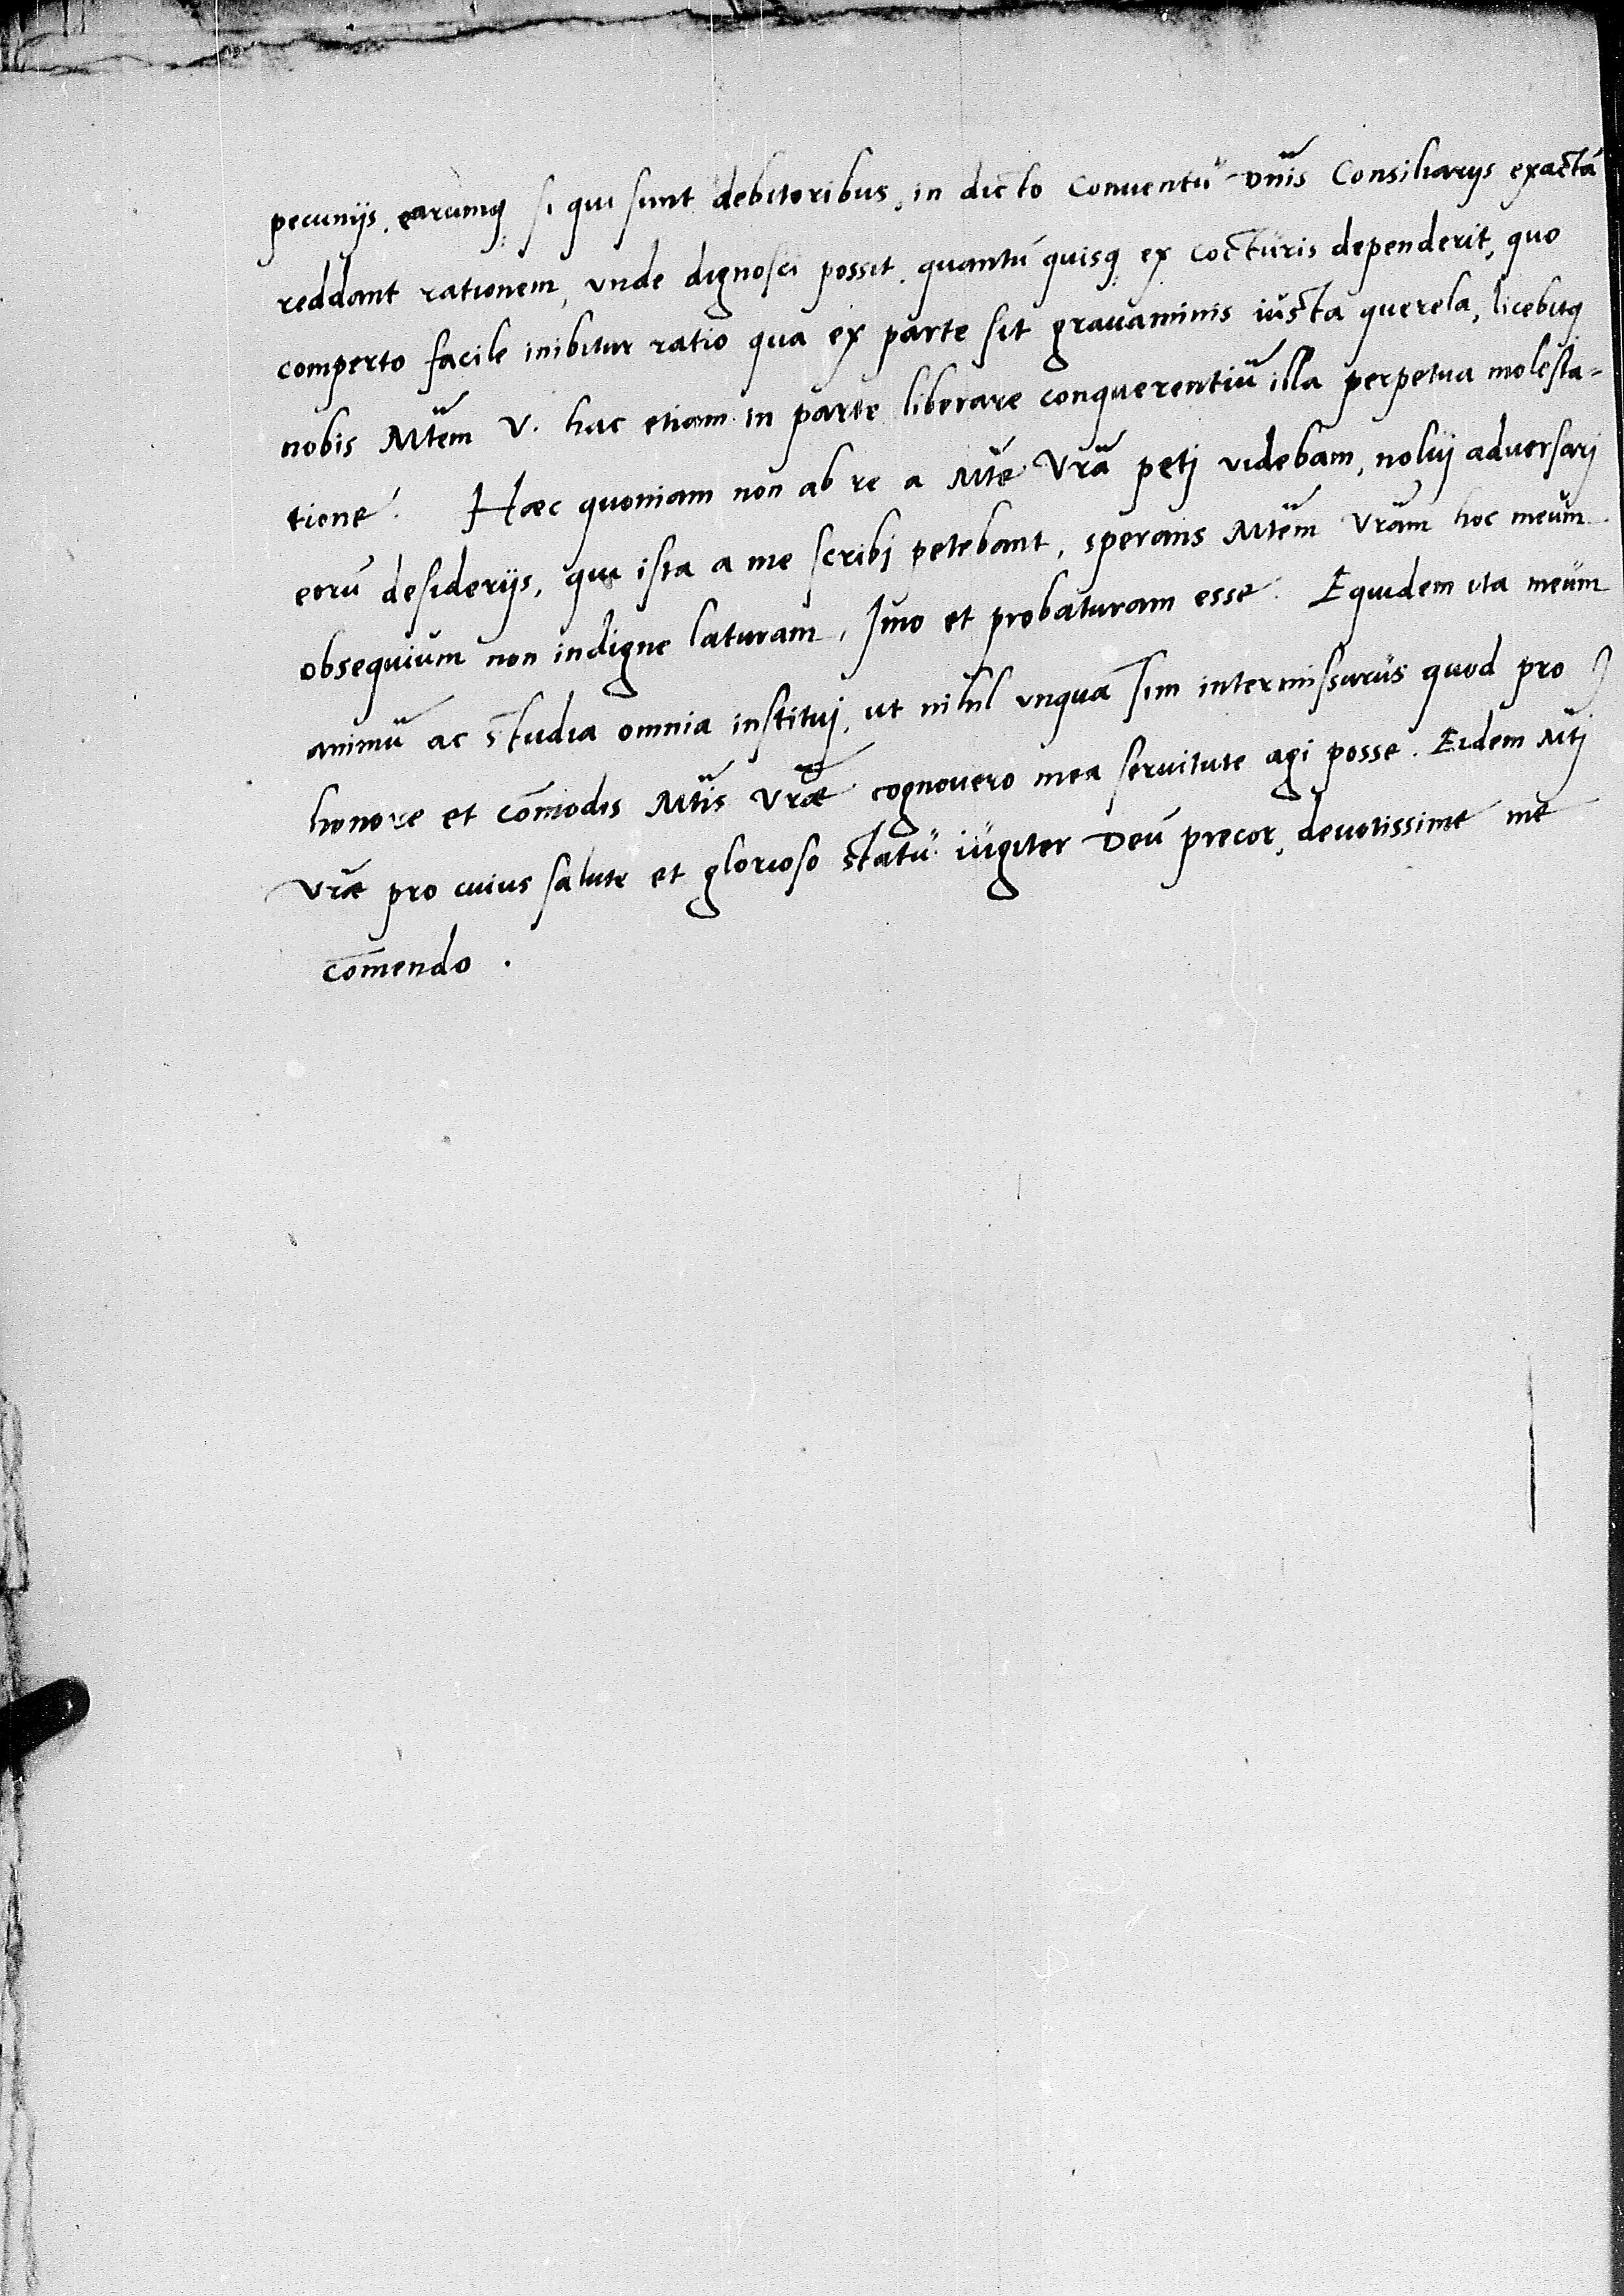 pecunijs, earumq́ꝫ si qui sunt debitoribus, in dicto Conuentu Dn̄is Consiliarijs exactā
reddant rationem, vnde dignosci possit, quantū quisqꝫ ex cocturis dependerit, quo
comperto facile inibitur ratio qua ex parte sit grauaminis iusta querela, licebitqꝫ
nobis Mtem V. hac etiam in parte liberare conquerentiū illa perpetua molesta-
tione. Haec quoniam non ab re a Mte Vrā petj videbam, nolui aduersarj
eorū desiderijs, qui ista a me scribj petebant, sperans Mtem Vrām hoc meum
obsequium non indigne laturam, Imo et probaturam esse. Equidem ita meum
animū ac studia omnia institui, ut nihil vnquā sim intermissurus quod pro
honore et com̄odis Mtis Vrae cognouero mea seruitute agi posse. Eidem Mtj
Vrae pro cuius salute et glorioso statu iugiter Deū precor, deuotissime me
com̄endo.